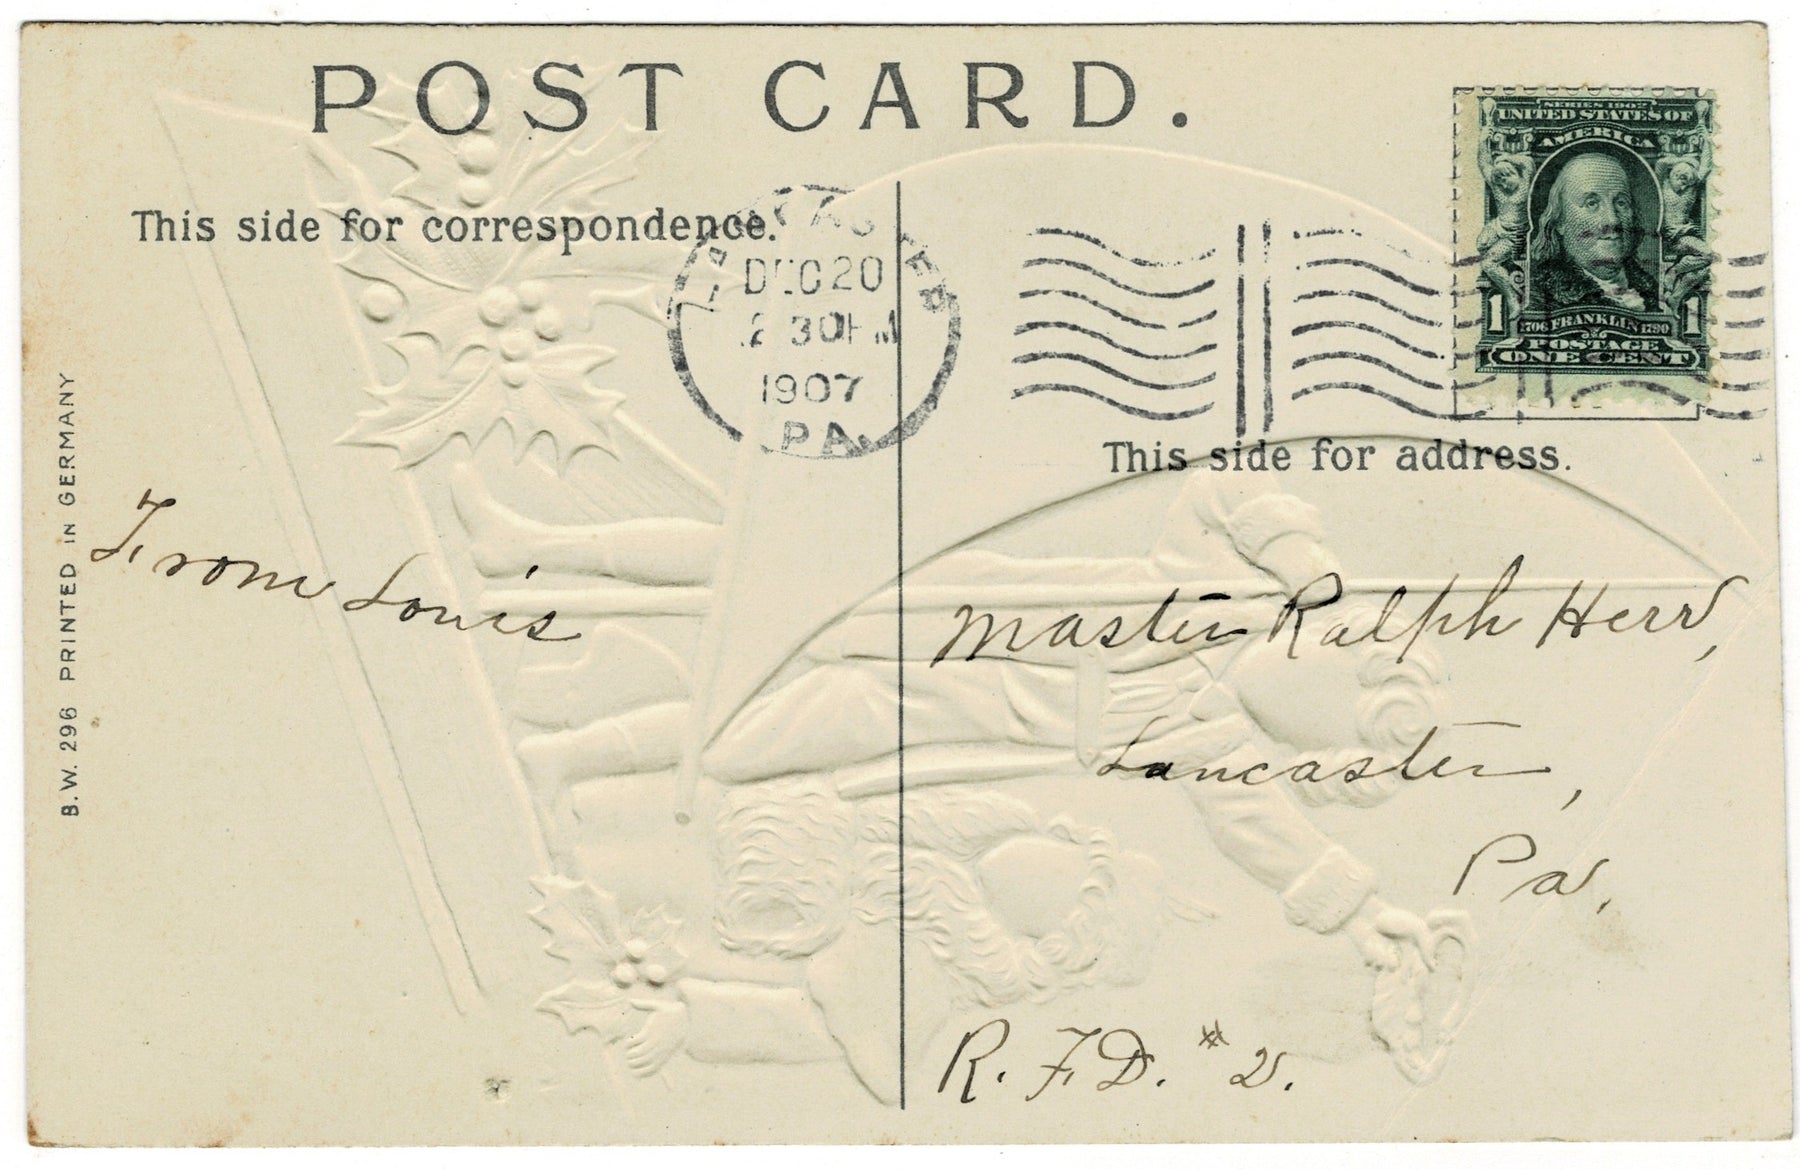 POST CARD.
This side for correspondence.
LANCASTER
DEC 20
2 30 PM
1907
PA.
SERIES 1902
UNITED STATES OF
AMERICA
1 1706 FRANKLIN 1790 1
POSTAGE
ONE CENT
This side for address.
B.W. 296 PRINTED IN GERMANY
From Louis
Master Ralph Herr,
Lancaster,
Pa.
R.F.D. # 2.